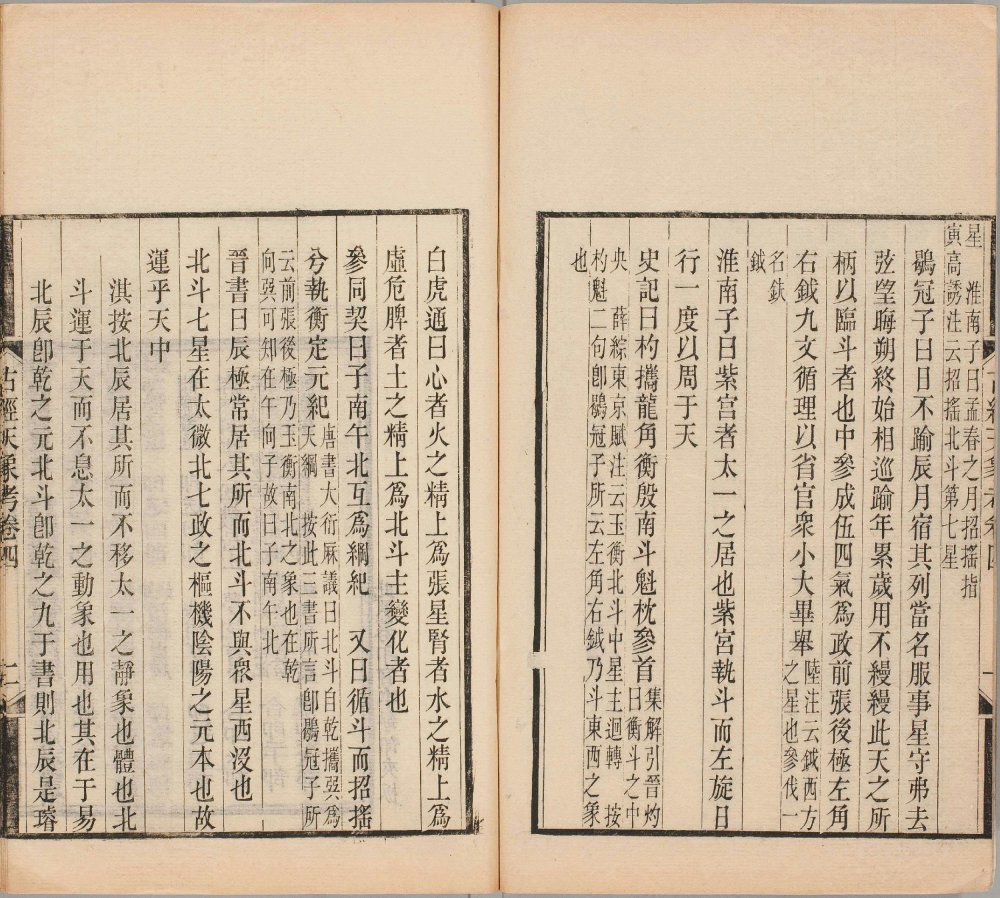 星　淮南子曰孟春之月招搖指
寅高誘注云招搖北斗第七星
鶡冠子曰日不踰辰月宿其列當名服事星守弗去
弦望晦朔終始相巡踰年累歲用不縵縵此天之所
柄以臨斗者也中參成伍四氣爲政前張後極左角
右鉞九文循理以省官衆小大畢舉
陸注云鉞西方
之星也參伐一
名鈇
鉞
淮南子曰紫宫者太一之居也紫宮執斗而左旋日
行一度以周于天
史記曰杓攜龍角衡殷南斗魁枕參首
集解引晉灼
曰衡斗之中
央　薛綜東京賦注云玉衡北斗中星主迴轉　按
杓魁二句卽鶡冠子所云左角右鉞乃斗東西之象
也
白虎通曰心者火之精上爲張星腎者水之精上爲
虛危脾者土之精上爲北斗主變化者也
參同契曰子南午北互爲綱紀　又曰循斗而招搖
兮執衡定元紀
唐書大衍厤議曰北斗自乾攜巽爲
天綱　按此三書所言卽鶡冠子所
云前張後極乃玉衡南北之象也在乾
向巽可知在午向子故曰子南午北
晉書曰辰極常居其所而北斗不與衆星西沒也
北斗七星在太微北七政之樞機陰陽之元本也故
運乎天中
淇按北辰居其所而不移太一之靜象也體也北
斗運于天而不息太一之動象也用也其在于易
北辰卽乾之元北斗卽乾之九于書則北辰是璿
古經天象考卷四
二